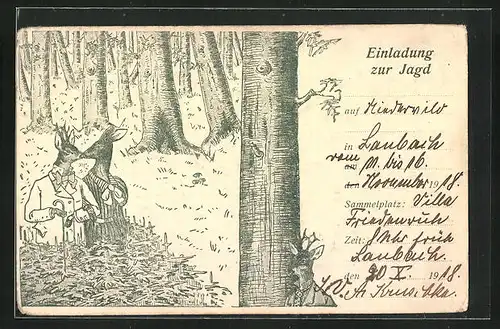 Einladung
zur Jagd
auf Niederwild
in Laubach
vom 11. bis 16.
den November 1918.
Sammelplatz: Villa
Friedensruh
Zeit: 8 Uhr früh
Laubach.
den 20 X. 1918.